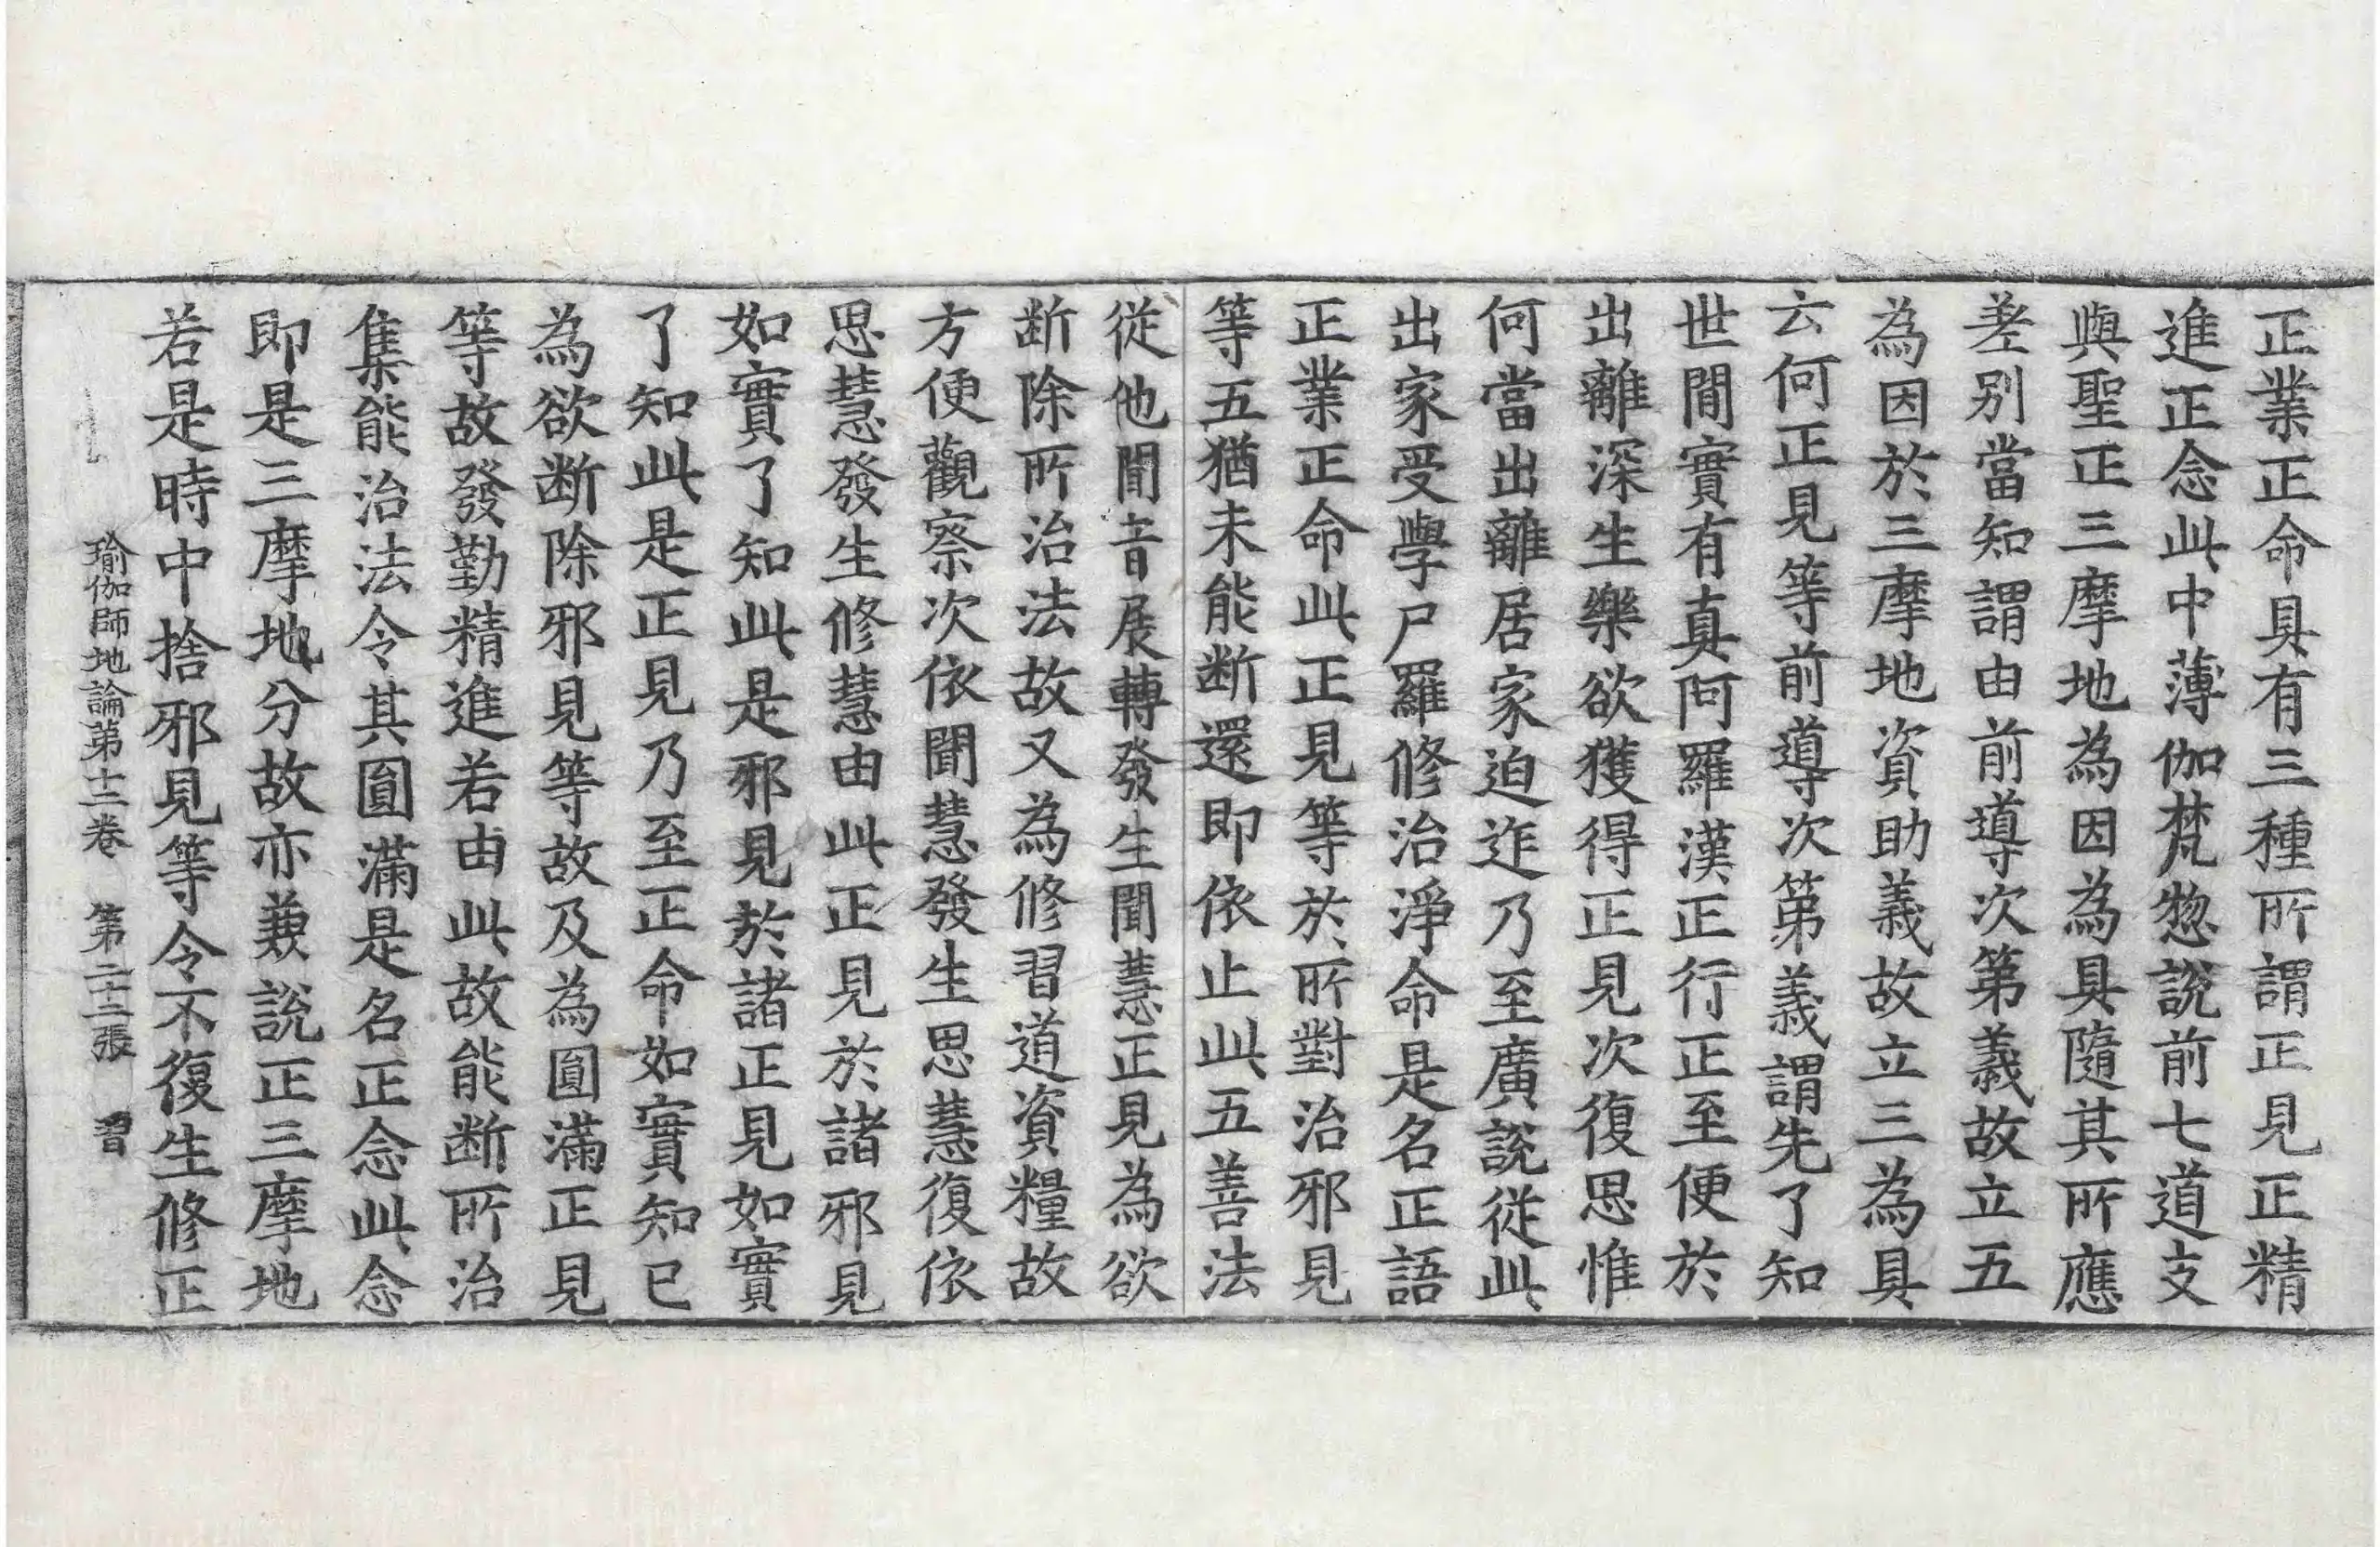 正業正命具有三種所謂正見正精
進正念此中薄伽梵惣說前七道支
與聖正三摩地為因為具隨其所應
差别當知謂由前導次第義故立五
為因於三摩地資助義故立三為具
云何正見等前導次第義謂先了知
世間實有真阿羅漢正行正至便於
出離深生樂欲獲得正見次復思惟
何當出離居家迫迮乃至廣說從此
出家受學尸羅修治淨命是名正語
正業正命此正見等於所對治邪見
等五猶未能断還即依止此五善法
從他聞音展轉發生聞慧正見為欲
断除所治法故又為修習道資糧故
方便觀察次依聞慧發生思慧復依
思慧發生修慧由此正見於諸邪見
如實了知此是邪見於諸正見如實
了知此是正見乃至正命如實知已
為欲断除邪見等故及為圓滿正見
等故發勤精進若由此故能断所治
集能治法令其圓滿是名正念此念
即是三摩地分故亦兼說正三摩地
若是時中捨邪見等令不復生修正
瑜伽師地論第十二卷 第二十二張 習